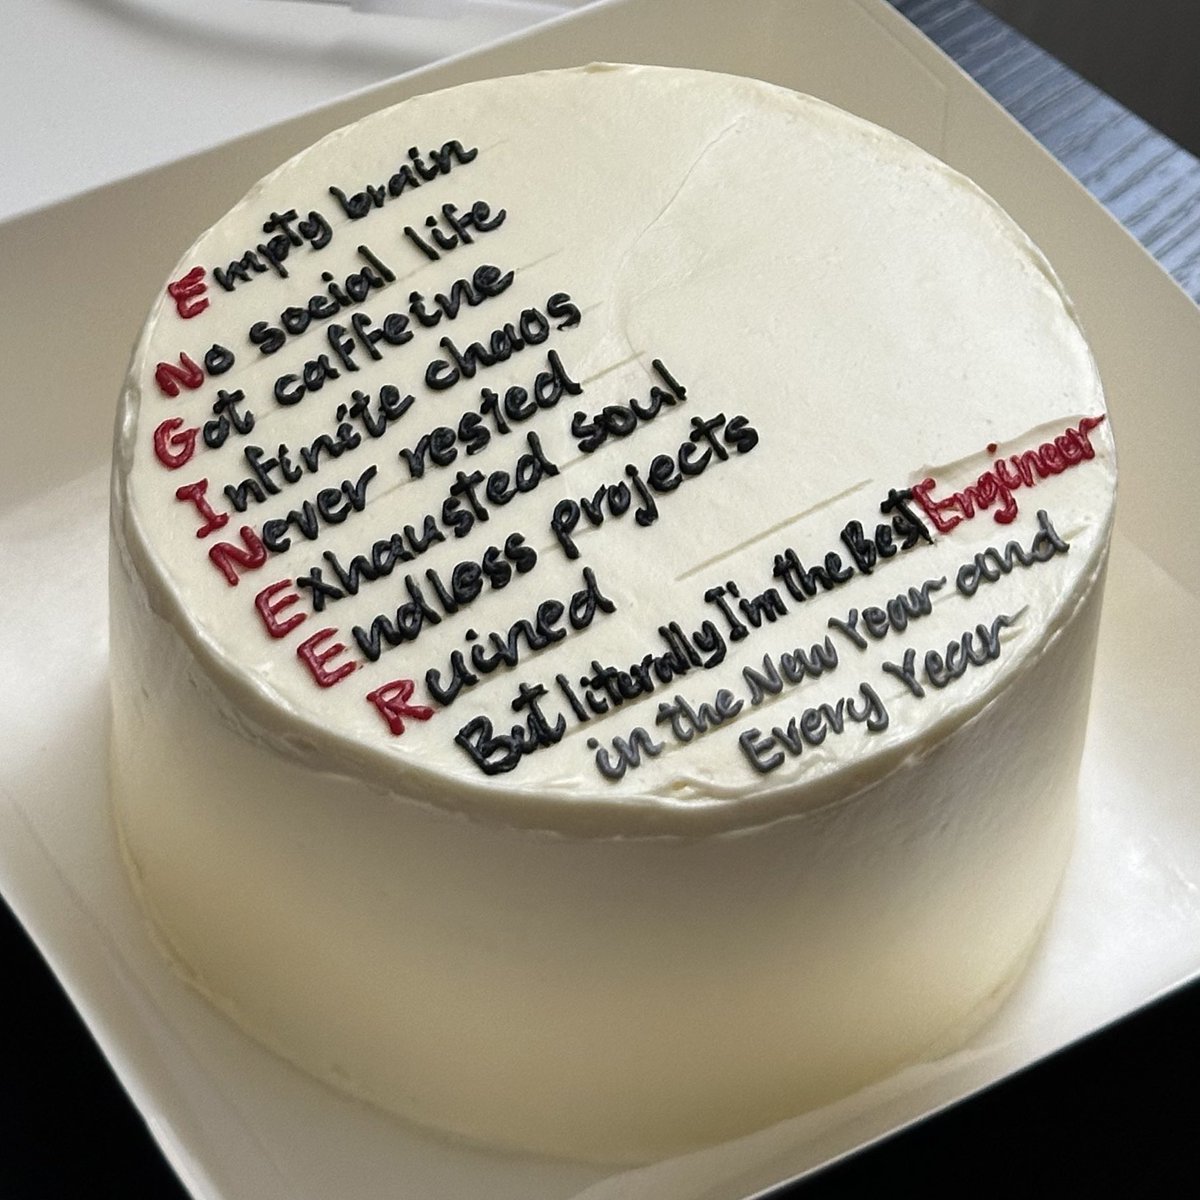 Empty brain
No social life
Got caffeine
Infinite chaos
Never rested
Exhausted soul
Endless projects
Ruined
But literally I'm the Best Engineer
in the New Year and
Every Year